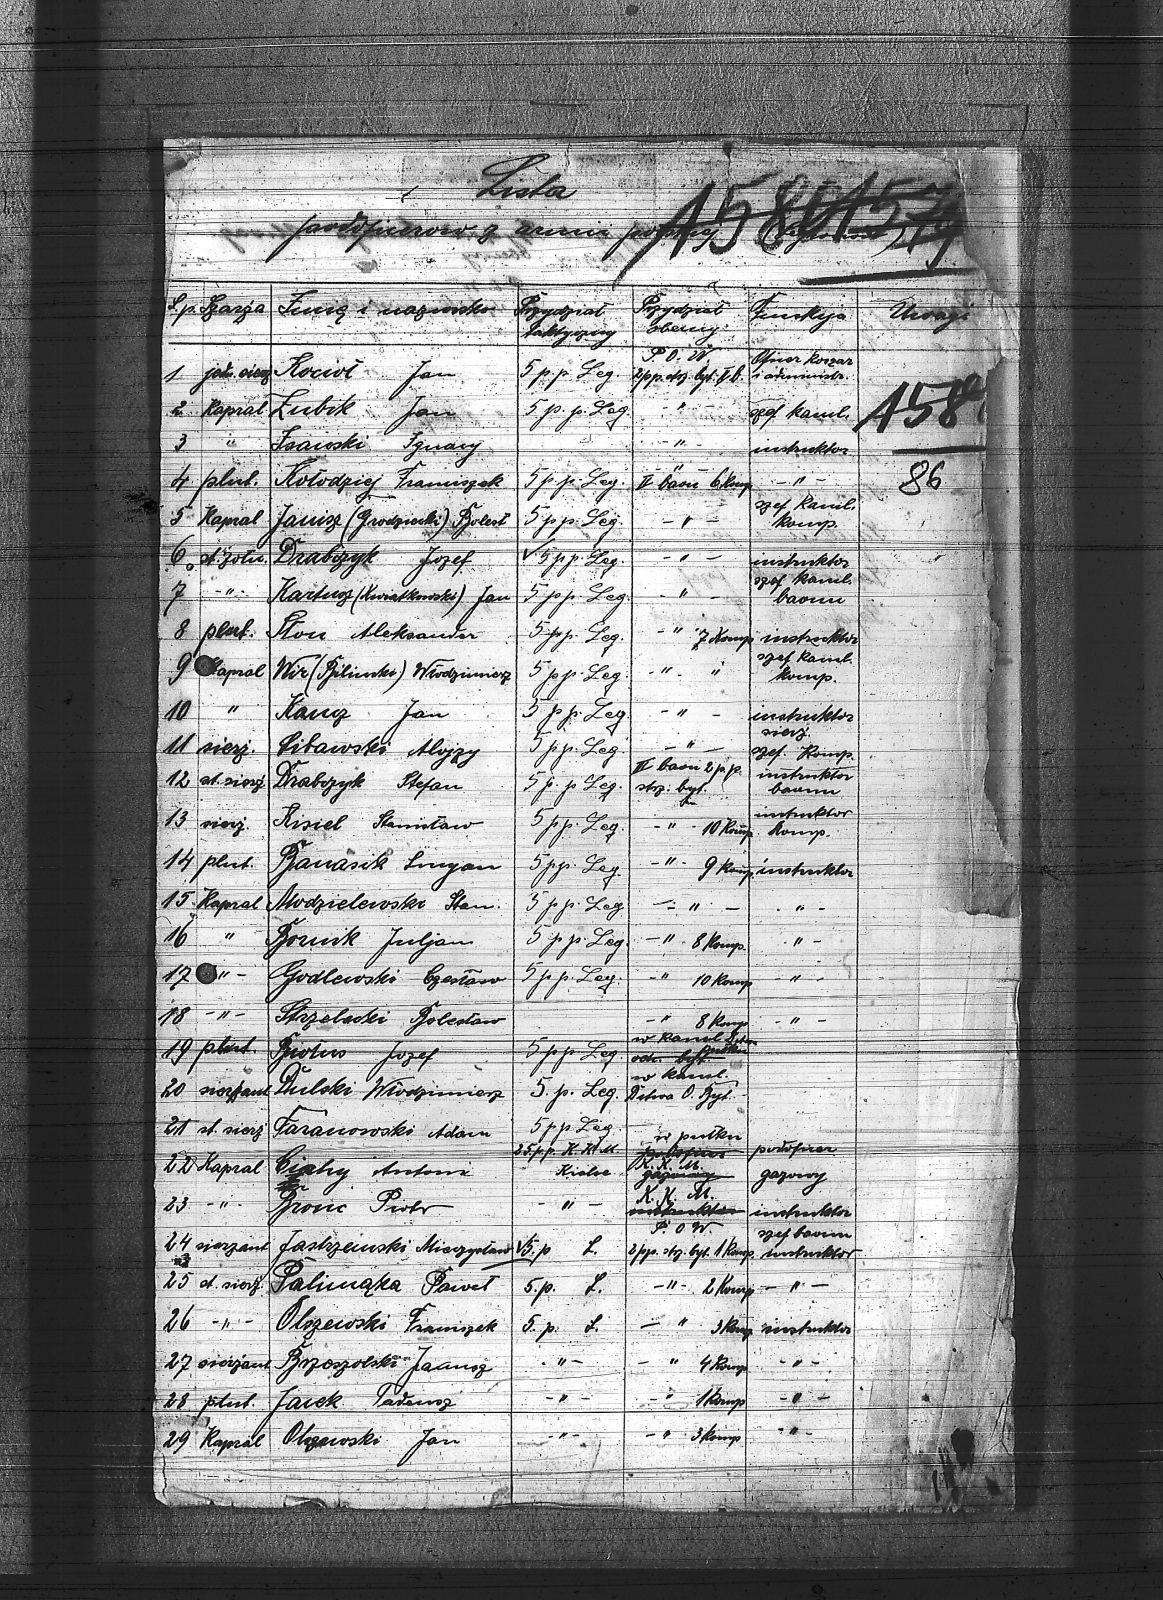 Lista
podoficerów z armii
L.p. Szarża Imię i nazwisko Przydział taktyczny Przydział obecny Funkcja Uwagi
1 Kocioł Jan 5 p.p. Leg. P.O.W. 2 p.p. strz. byt. Oficer koszar i administr.
2 Kapral Zubik Jan 5 p.p. Leg. -"- szef kancl. 1580
3 " Isawski Ignacy -"- instruktor
4 plut. Kołodziej Franciszek 5 p.p. Leg. II baon 6 Komp. -"- 86
5 Kapral Janisz (Grodziecki) Bolest 5 p.p. Leg. -"- szef kancl. komp.
6 st. żołn. Drabczyk Józef 5 p.p. Leg. -"- instruktor
7 -"- Kartusz (Kwiatkowski) Jan 5 p.p. Leg. -"- szef kancl. baonu
8 plut. Słoń Aleksander 5 p.p. Leg. -"- 7 Komp instruktor
9 Kapral Wir (Biliński) Włodzimierz 5 p.p. Leg. -"- " szef kancl. komp.
10 " Kancz Jan 5 p.p. Leg. -"- instruktor
11 sierż. Libawski Alojzy 5 p.p. Leg. -"- sierż. szef. Komp.
12 st. sierż. Drabczyk Stefan 5 p.p. Leg. baon 2 p.p. strz. byt. instruktor baonu
13 sierż. Kisiel Stanisław 5 p.p. Leg. -"- 10 Komp. instruktor Komp.
14 plut. Banasik Lucyan 5 p.p. Leg. -"- 9 Komp. instruktor
15 Kapral Modzielewski Stan. 5 p.p. Leg -"- -"-
16 " Bornik Juljan 5 p.p. Leg. -"- 8 Komp. -"-
17 -"- Godlewski Czesław 5 p.p. Leg. -"- 10 Komp -"-
18 -"- Strzelecki Bolesław -"- 8 Komp -"-
19 plut. Biotus Józef 5 p.p. Leg. w kancl.
20 sierżant Dulski Włodzimierz 5 p. Leg. w kancl. D-twa O. Byt.
21 st. sierż Taranowski Adam 5 p.p. Leg.
22 Kapral Cichy Antoni 25 p.p. K.K.M. Kielce w pułku K.K.M. gazowy podoficer gazowy
23 -"- Bronc Piotr -"- K.K.M. instruktor instruktor
24 sierżant Jastrzemski Mieczysław 5. p. L. P.O.W. 2 p.p. strz. byt. 1 Komp. szef baonu instruktor
25 st. sierż. Palmąka Paweł 5. p. L. -"- 2 Komp -"-
26 -"- Olszewski Franciszek 5. p. L. -"- 3 Komp instruktor
27 sierżant Brzoszolski Janusz -"- -"- 4 Komp -"-
28 plut. Jacek Tadeusz -"- -"- 1 Komp -"-
29 Kapral Olszewski Jan -"- -"- 3 Komp -"-